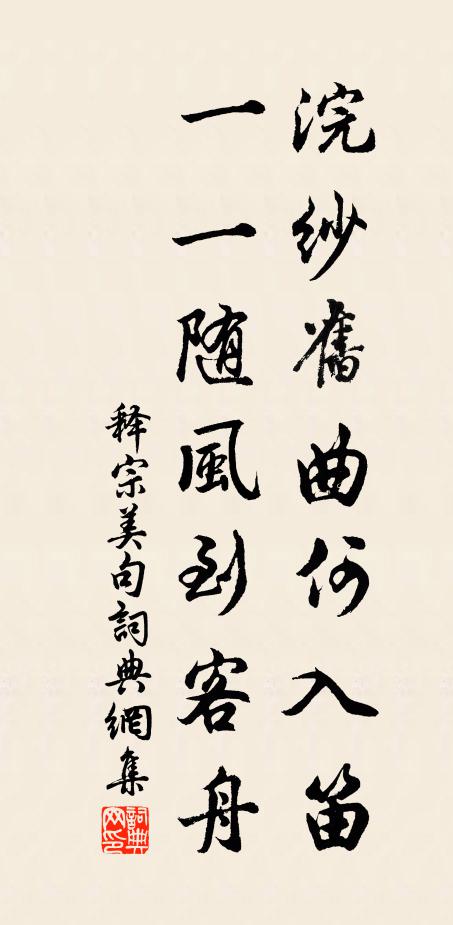 浣纱舊曲何入笛
一一随風到客舟
释宗美句詞典網集
詞典網印